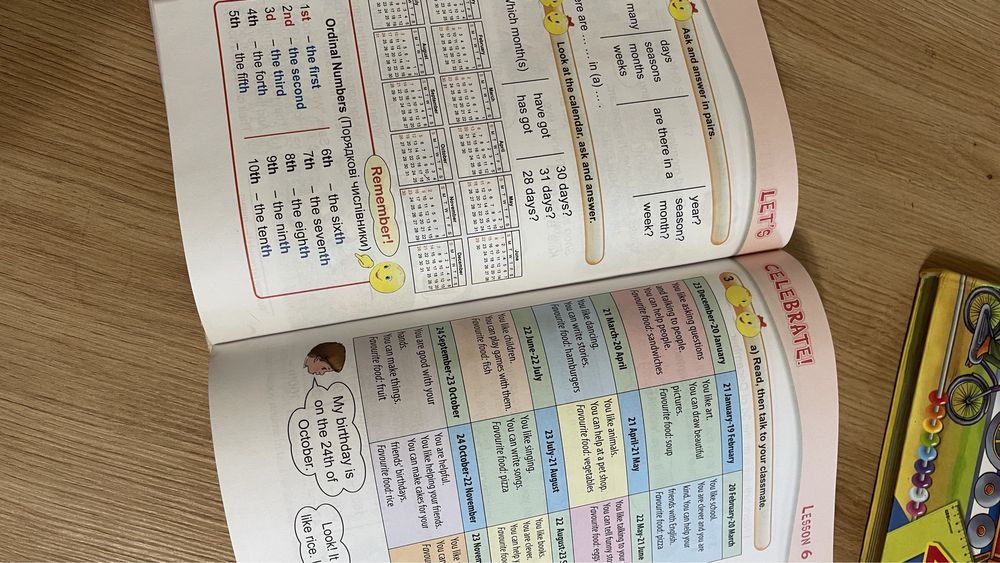 LET'S
Ask and answer in pairs.
many
days
seasons
months
weeks
are there in a
year?
season?
month?
week?
ere are ...... in (a) ... .
Look at the calendar, ask and answer.
Which month(s)
have got
has got
30 days?
31 days?
28 days?
February
March
April
May
June
August
September
October
November
December
Remember!
Ordinal Numbers (Порядкові числівники)
1st – the first
2nd – the second
3d – the third
4th – the forth
5th – the fifth
6th – the sixth
7th – the seventh
8th – the eighth
9th – the ninth
10th – the tenth
CELEBRATE!
LESSON 6
3
a) Read, then talk to your classmate.
21 December-20 January
You like asking questions
and talking to people.
You can help people.
Favourite food: sandwiches
21 January-19 February
You like art.
You can draw beautiful
pictures.
Favourite food: soup
20 February-20 March
You like school.
You are clever and you are
kind. You can help your
friends with English.
Favourite food: pizza
21 March-20 April
You like dancing.
You can write stories.
Favourite food: hamburgers
21 April-21 May
You like animals.
You can help at a pet shop.
Favourite food: vegetables
22 May-21 June
You like talking to your
You can tell funny sto
Favourite food: eggs
22 June-22 July
You like children.
You can play games with them.
Favourite food: fish
23 July-21 August
You like singing.
You can write songs.
Favourite food: pizza
22 August-23 S
You like books.
You are clever.
You can help y
Favourite foo
24 September-23 October
You are good with your
hands.
You can make things.
Favourite food: fruit
24 October-22 November
You are helpful.
You like helping your friends.
You can make cakes for your
friends' birthdays.
Favourite food: rice
23 Novem
You like
You can
Favou
My birthday is
on the 24th of
October.
Look! It
like rice.